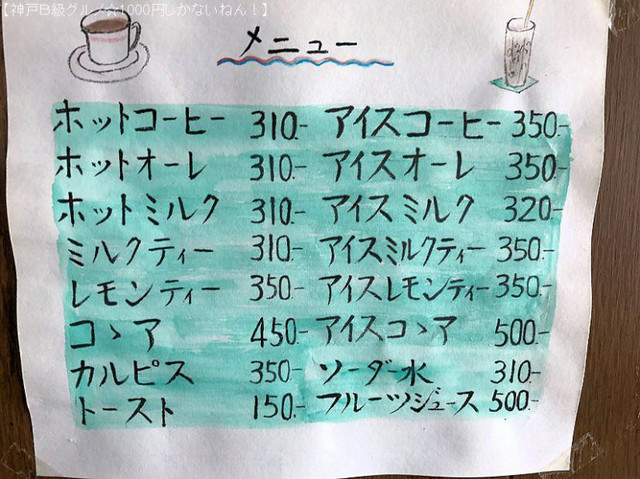 【神戸B級グルメ☆1000円しかないねん！】
メニュー
ホットコーヒー 310.- アイスコーヒー 350.-
ホットオーレ 310.- アイスオーレ 350.-
ホットミルク 310.- アイスミルク 320.-
ミルクティー 310.- アイスミルクティー 350.-
レモンティー 350.- アイスレモンティー 350.-
コヽア 450.- アイスコヽア 500.-
カルピス 350.- ソーダー水 310.-
トースト 150.- フルーツジュース 500.-